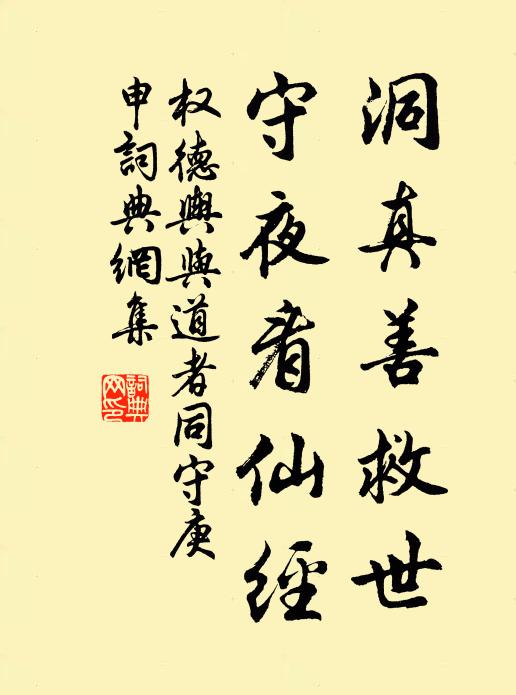 洞真善救世
守夜看仙經
权德輿與道者同守庚
申詞典網集
詞典网印